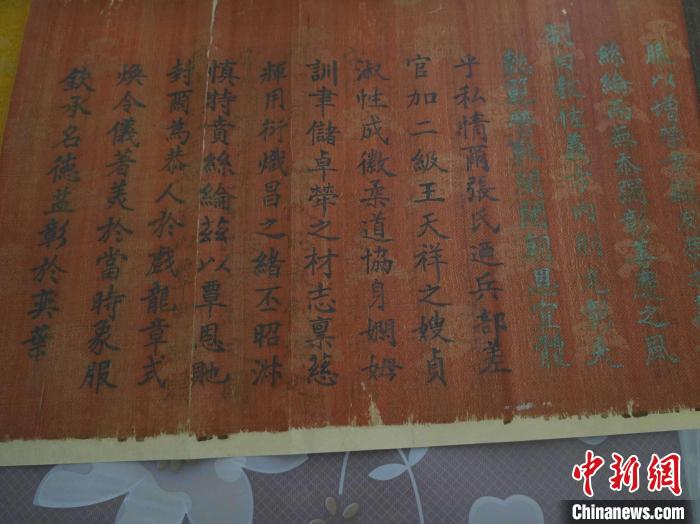 服以增
絲綸而無忝彌彰善慶之風
制曰敦
懿範
乎私情爾張氏迺兵部差
官加二級王天祥之嫂貞
淑性成徽柔道協身嫻姆
訓聿儲卓犖之材志稟慈
輝用衍熾昌之緒丕昭淋
慎特賁絲綸兹以覃恩貤
封爾為恭人於戲龍章式
煥令儀著美於當時象服
欽承名德益彰於奕葉
中新网
Chinanews.com